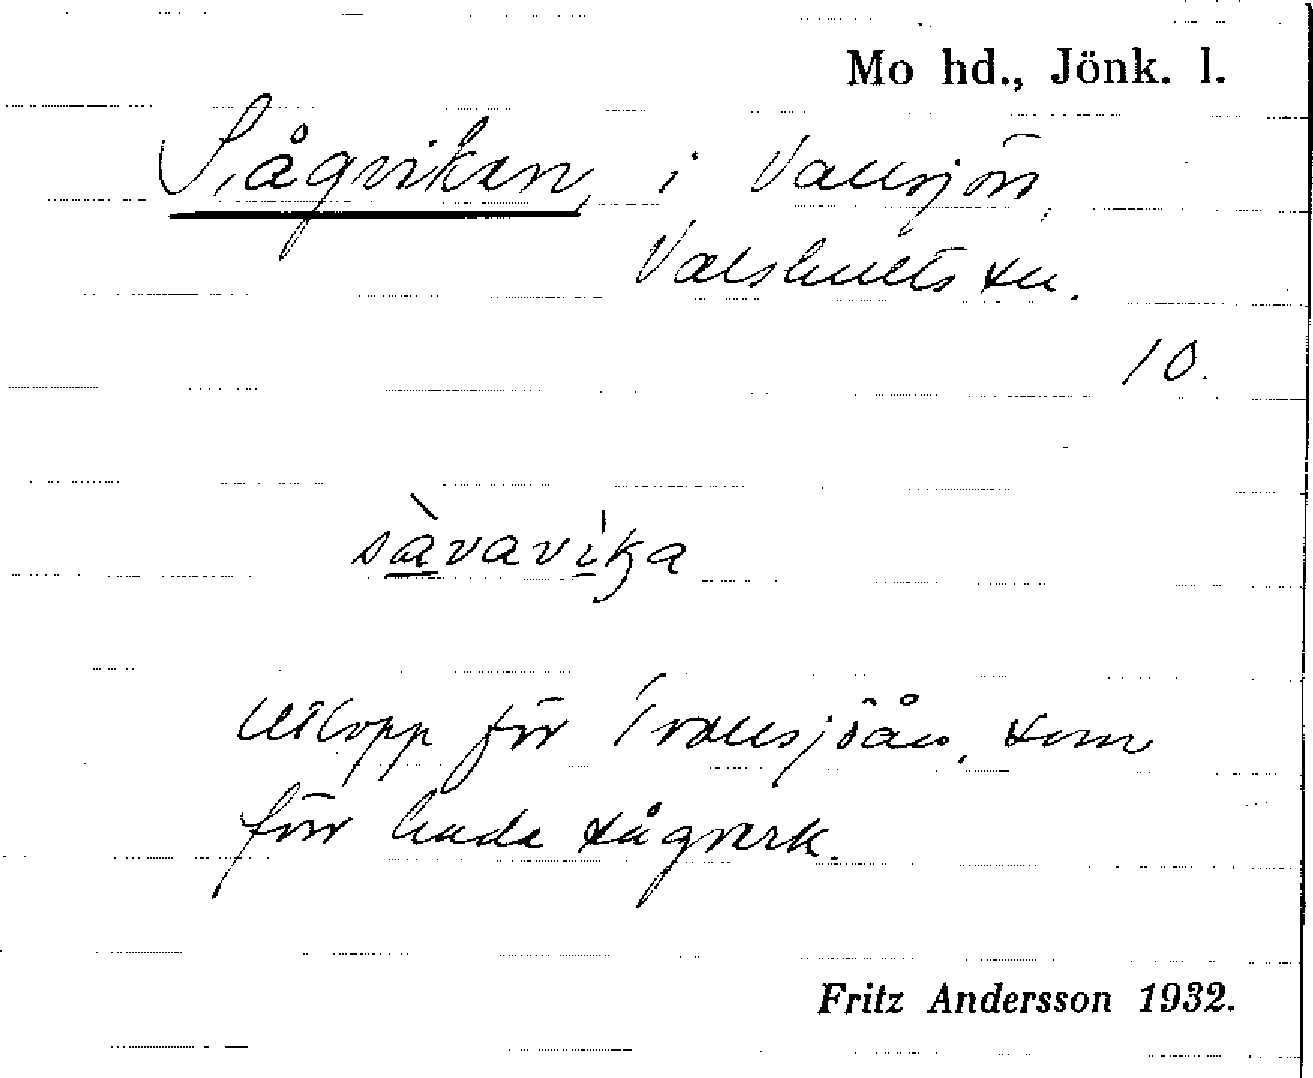 Mo hd., Jönk. l.
Sågviken i Vallsjön,
Valshults sn.
10.
såvavika
Utlopp för Trollsjöån, som
förr hade sågverk.
Fritz Andersson 1932.